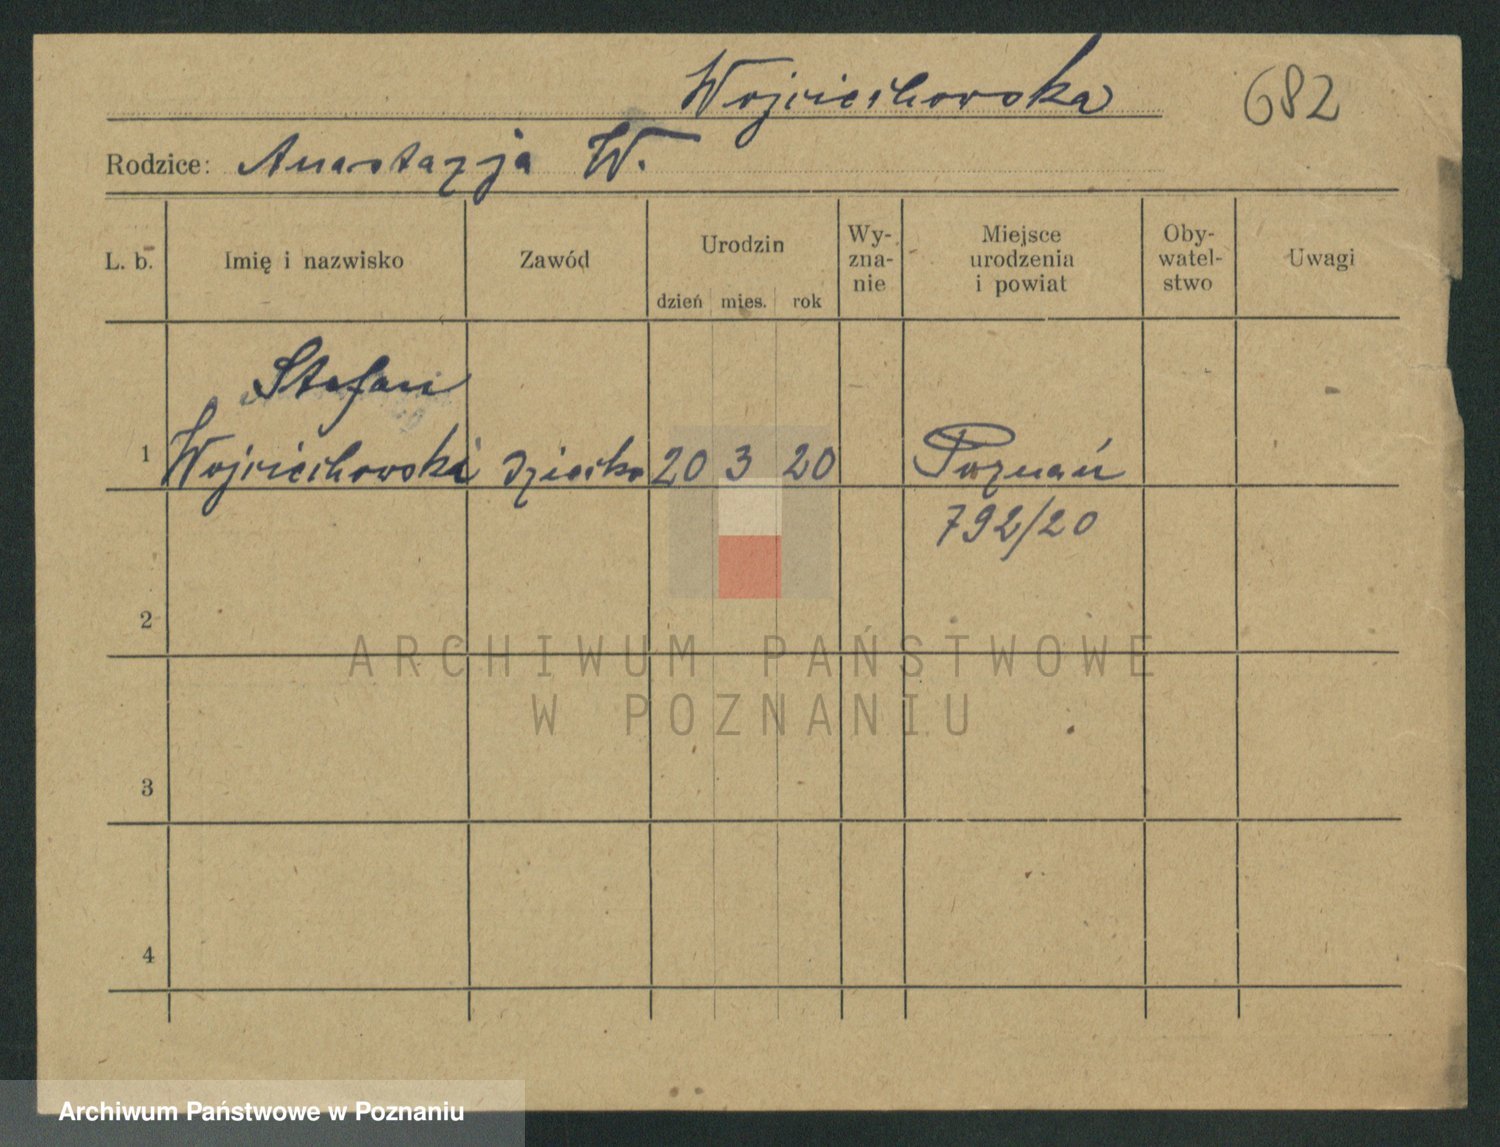 Wojciechowska
682
Rodzice: Anastazja W.
L. b. Imię i nazwisko Zawód Urodzin dzień mies. rok Wy-zna-nie Miejsce urodzenia i powiat Oby-watel-stwo Uwagi
Stefan
1 Wojciechowski dziecko 20 3 20 Poznań
792/20
2
ARCHIWUM PAŃSTWOWE
W POZNANIU
3
4
Archiwum Państwowe w Poznaniu